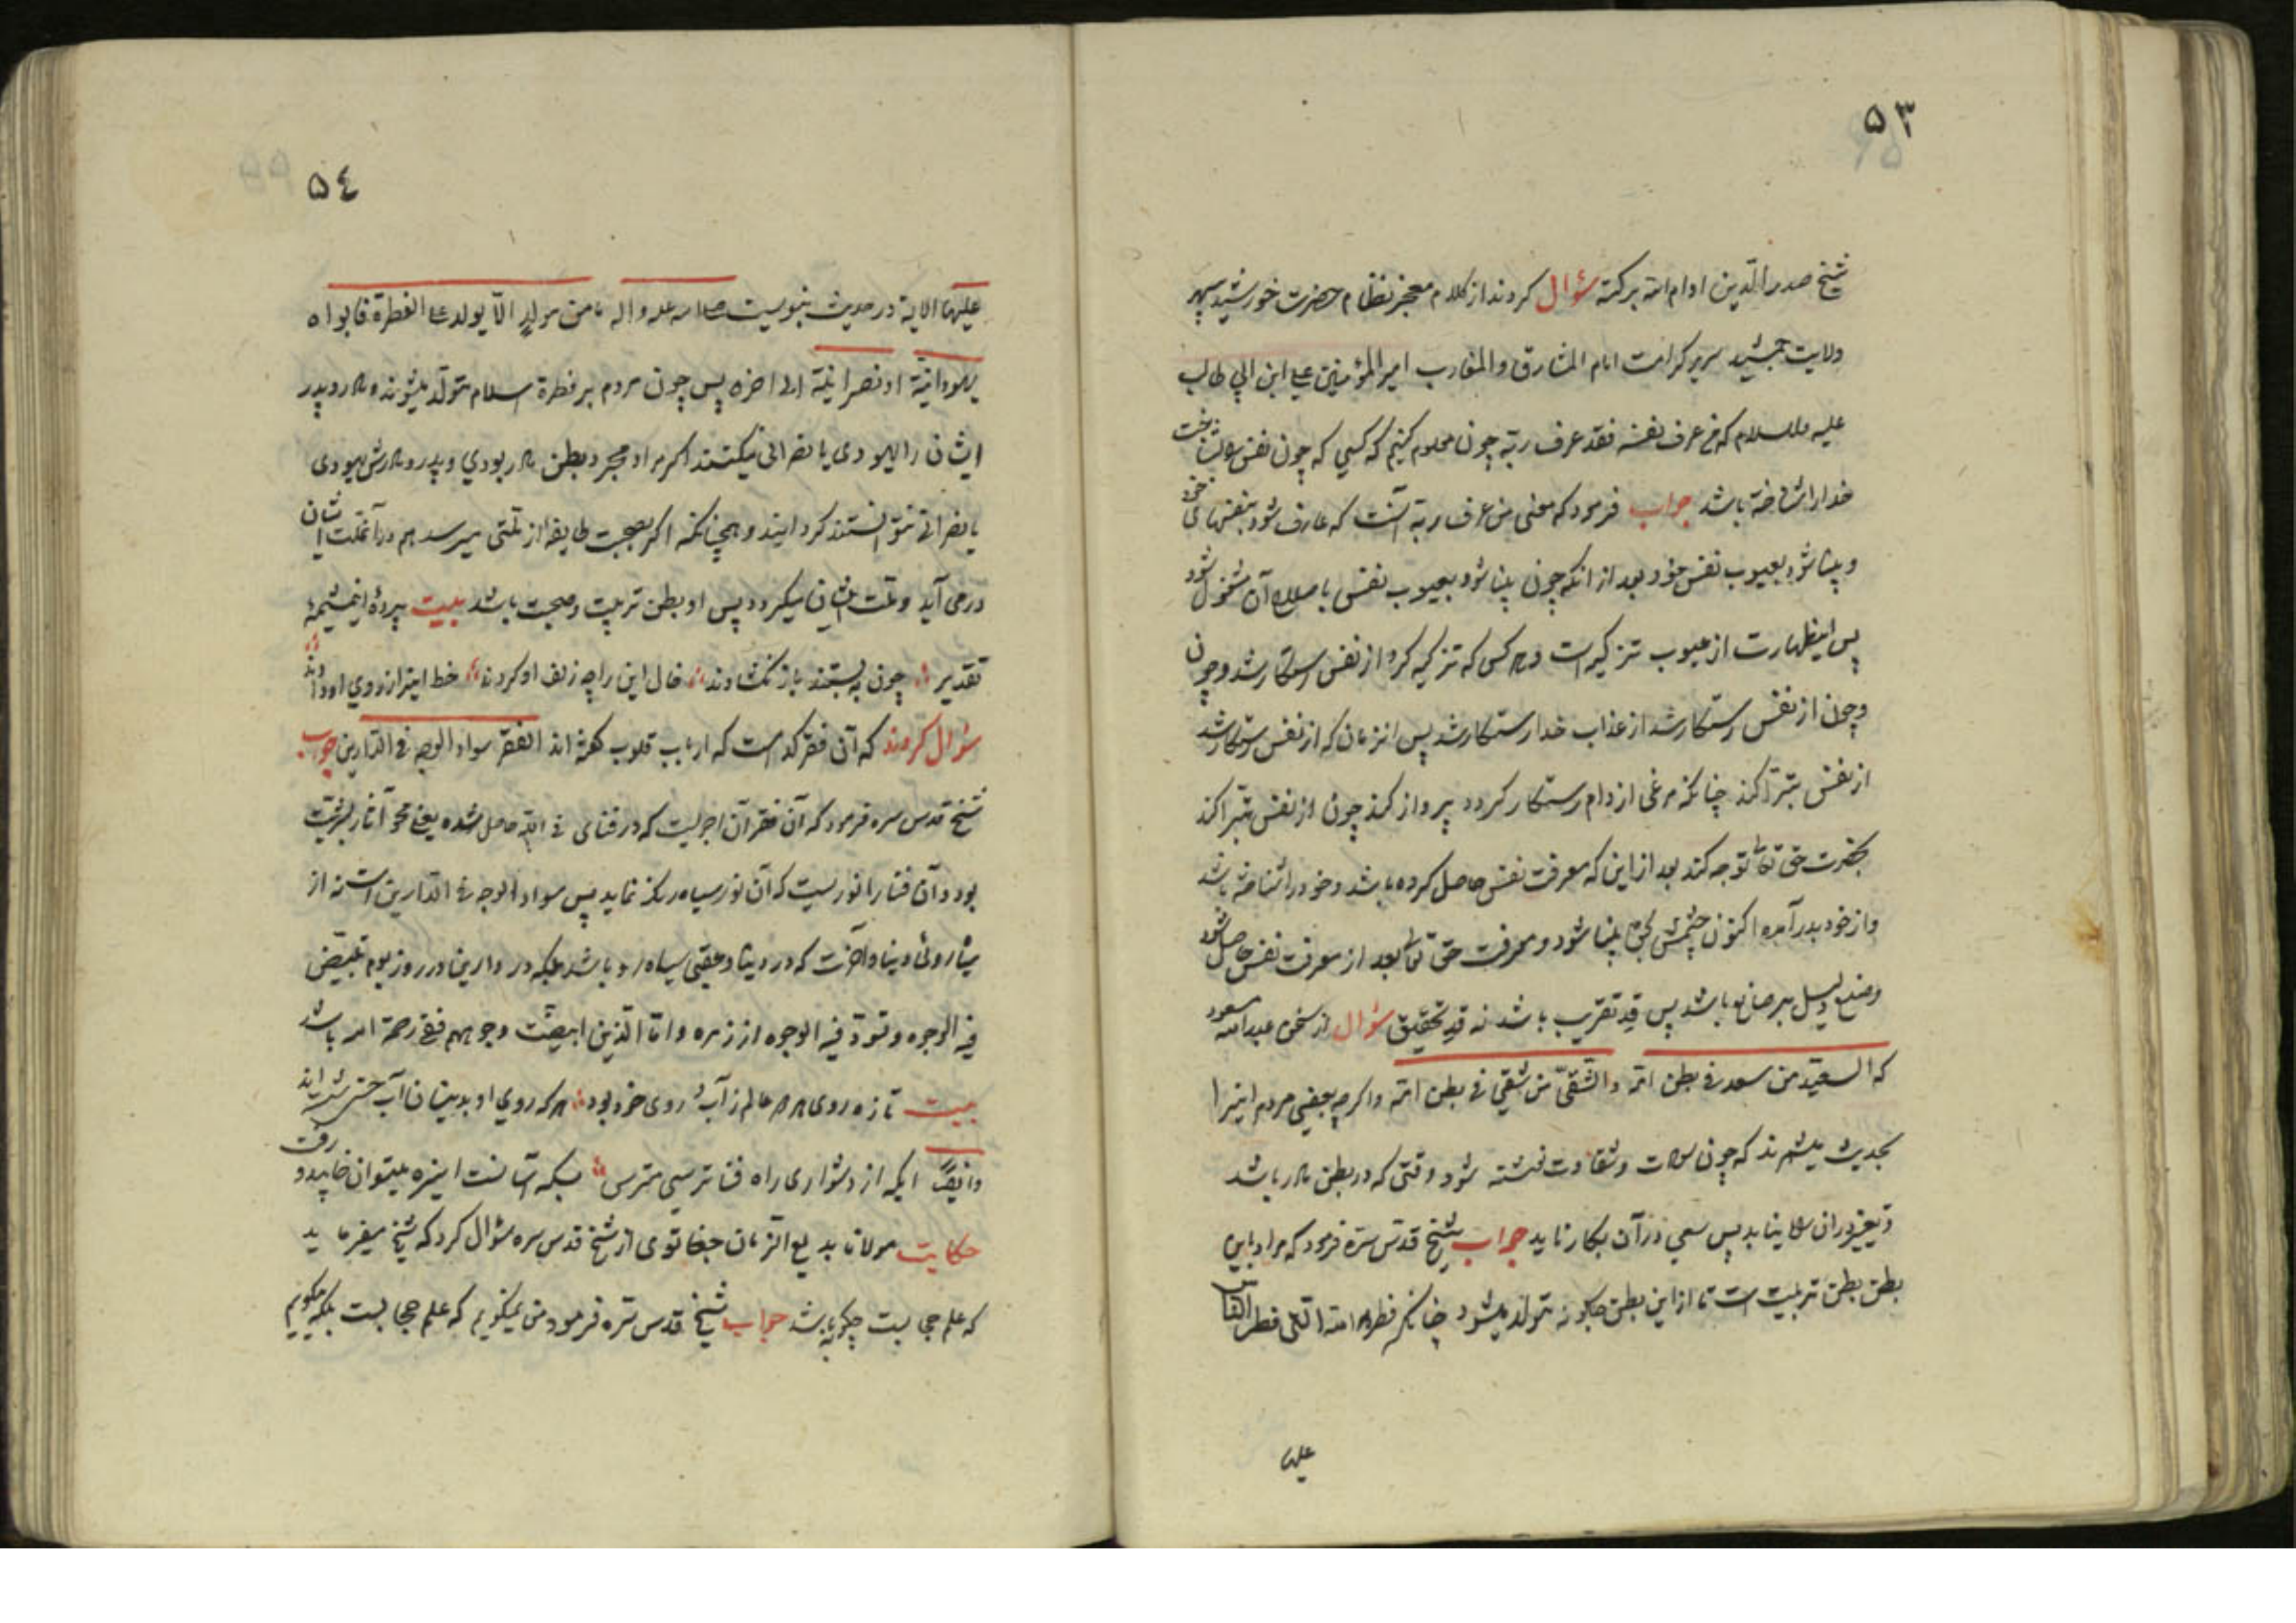 ۵۳
شیخ صدر الدین ادام الله برکته سؤال کردند از کلام معجز نظام حضرت خورشید سپهر
ولایت جمشید سریر کرامت امام المشارق والمغارب امیر المؤمنین علی ابن ابی طالب
علیه السلام که من عرف نفسه فقد عرف ربه چون معلوم کنیم که کسی که چون نفس بشناخت
خدا را شناخته باشد جواب فرمود که معنی من عرف ربه آنست که عارف شود بنفسهای خود
و بینا شود بعیوب نفس خود بعد از انکه چون بینا شود بعیوب نفس باصلاح آن مشغول شود
پس اینطهارت از عیوب تزکیه است و هر کس که تزکیه کرد از نفس رستکار شد و چون
و چون از نفس رستکار شد از عذاب خدا رستکار شد پس انزمان که از نفس رستکار شد
از نفس تبرّا کند چنانکه مرغی از دام رستکار کردد پرواز کند چون از نفس تبرا کند
بحضرت حق تعالی توجه کند بعد از این که معرفت نفس حاصل کرده باشد و خود را شناخته باشد
و از خود بدر آمده اکنون چشمش بحق بینا شود و معرفت حق تعالی بعد از معرفت نفس حاصل شود
و صنع دلیل بر صانع باشد پس قدِ تقریب باشد نه قدِ تحقیق سؤال از سخن عبد الله مسعود
که السعید من سعد فی بطن امّه والشقیّ من شقی فی بطن امّه و اکرچه بعضی مردم اینرا
بحدیث میشمرند که چون سعادت و شقاوت نبشته شود وقتی که در بطن مادر باشد
و تغییر در ان نیابد پس سعی در آن بکار ناید جواب شیخ قدّس سرّه فرمود که مراد باین
بطن بطن تربیت است تا از این بطن چکونه متولد میشود چنانکه فطرة الله التی فطر الناس
علیها
۵٤
علیها الایة در حدیث نبویست صلی الله علیه و اله ما من مولدٍ الّا یولد علی الفطرة فابواه
یهودانیة او نصرانیّة الی اخره پس چون مردم بر فطرة اسلام متولّد میشوند و مادر و پدر
ایشان را یهودی یا نصرانی میکنند اکر مراد مجرد بطن مادر بودی و پدر و مادرش یهودی
یا نصرانی نتوانستند کردانیند و همچنانکه اکر بصحبت طایفه از ملّتی میرسد هم در آنملت ایشان
در می آید و ملت ایشان میکیرد پس او بطن تربیت و صحبت باشد بیت پردۀ اینشیمۀ
تقدیر چون به بستند باز نکشادند خال این را چه زلف او کردند خط اینرا ز روی او دادند
سؤال کردند که آن فقر کدامست که ارباب قلوب کفته اند الفقر سواد الوجه فی الدّارین جواب
شیخ قدس سره فرمود که آن فقر آن اجرلیت که در فنای فی الله حاصل شده یعنی محو آثار بشریت
بود و آن فنا را نوریست که آن نور سیاه رنک نماید پس سواد الوجه فی الدّارین است نه از
سیاه روئی دنیا و آخرت که در دنیا و عقبی سیاه رو باشد بلکه در دارین در روز یوم تبیضّ
فیه الوجوه و تسودّ فیه الوجوه از زمره و امّا الّذین ابیضّت وجوههم ففی رحمة الله باشد
بیت تازه روی هر دو عالم ز آب روی خود بود هر که روی او بدینسان آب حسن شسته اند
و ایضاً ایکه از دشواری راه فنا ترسی مترس بسکه آسانست اینره میتوان خوابیده رفت
حکایت مولانا بدیع الزمان جغاتوی از شیخ قدس سره سؤال کرد که شیخ میفرماید
که علم حجابست چکونه باشد جواب شیخ قدس سرّه فرمود من نمیکویم که علم حجابست بلکه میکویم